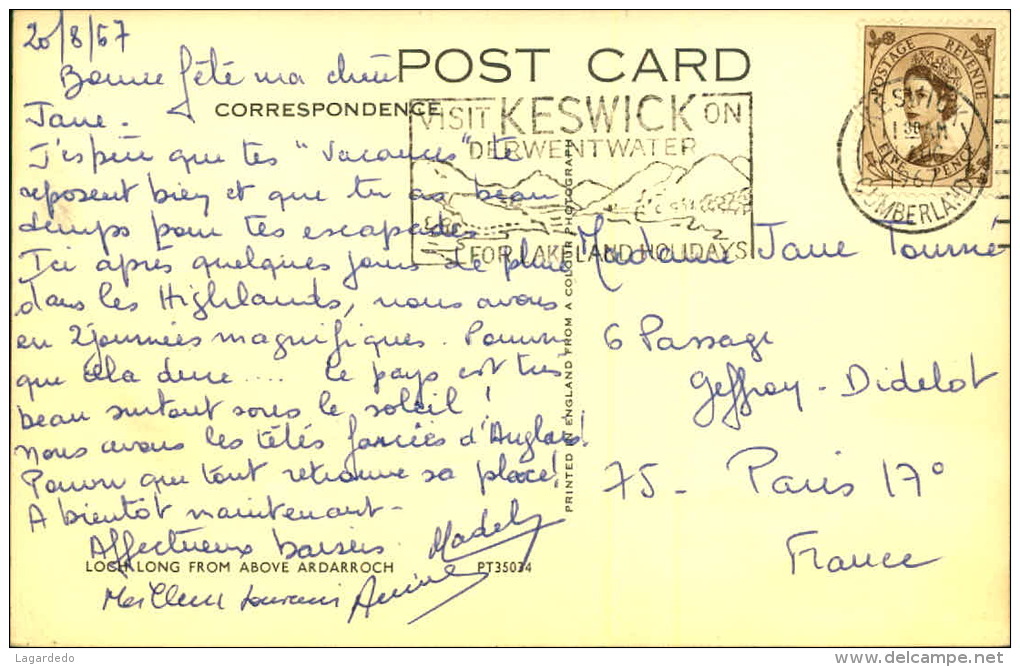 20/8/67
Bonne fête ma chère
Jane.
J'espère que tes "vacances" te
reposent bien et que tu as beau
temps pour tes escapades
Ici après quelques jours de pluie
dans les Highlands, nous avons
eu 2 journées magnifiques. Pourvu
que cela dure.... Le pays est très
beau surtout sous le soleil!
Nous avons les têtes farcies d'Anglais!
Pourvu que tout retrouve sa place!
A bientôt maintenant-
Affectueux baisers.
Meilleurs souvenirs
POST CARD
CORRESPONDENCE
VISIT KESWICK ON
DERWENTWATER
FOR LAKELAND HOLIDAYS
POSTAGE REVENUE
PENCE
CUMBERLAND
PRINTED IN ENGLAND FROM A COLOUR PHOTOGRAPH
Madame Jane Tourné
6 Passage
Geffroy-Didelot
75- Paris 17°
France
LOCH LONG FROM ABOVE ARDARROCH
PT35034
Lagardedo
www.delcampe.net